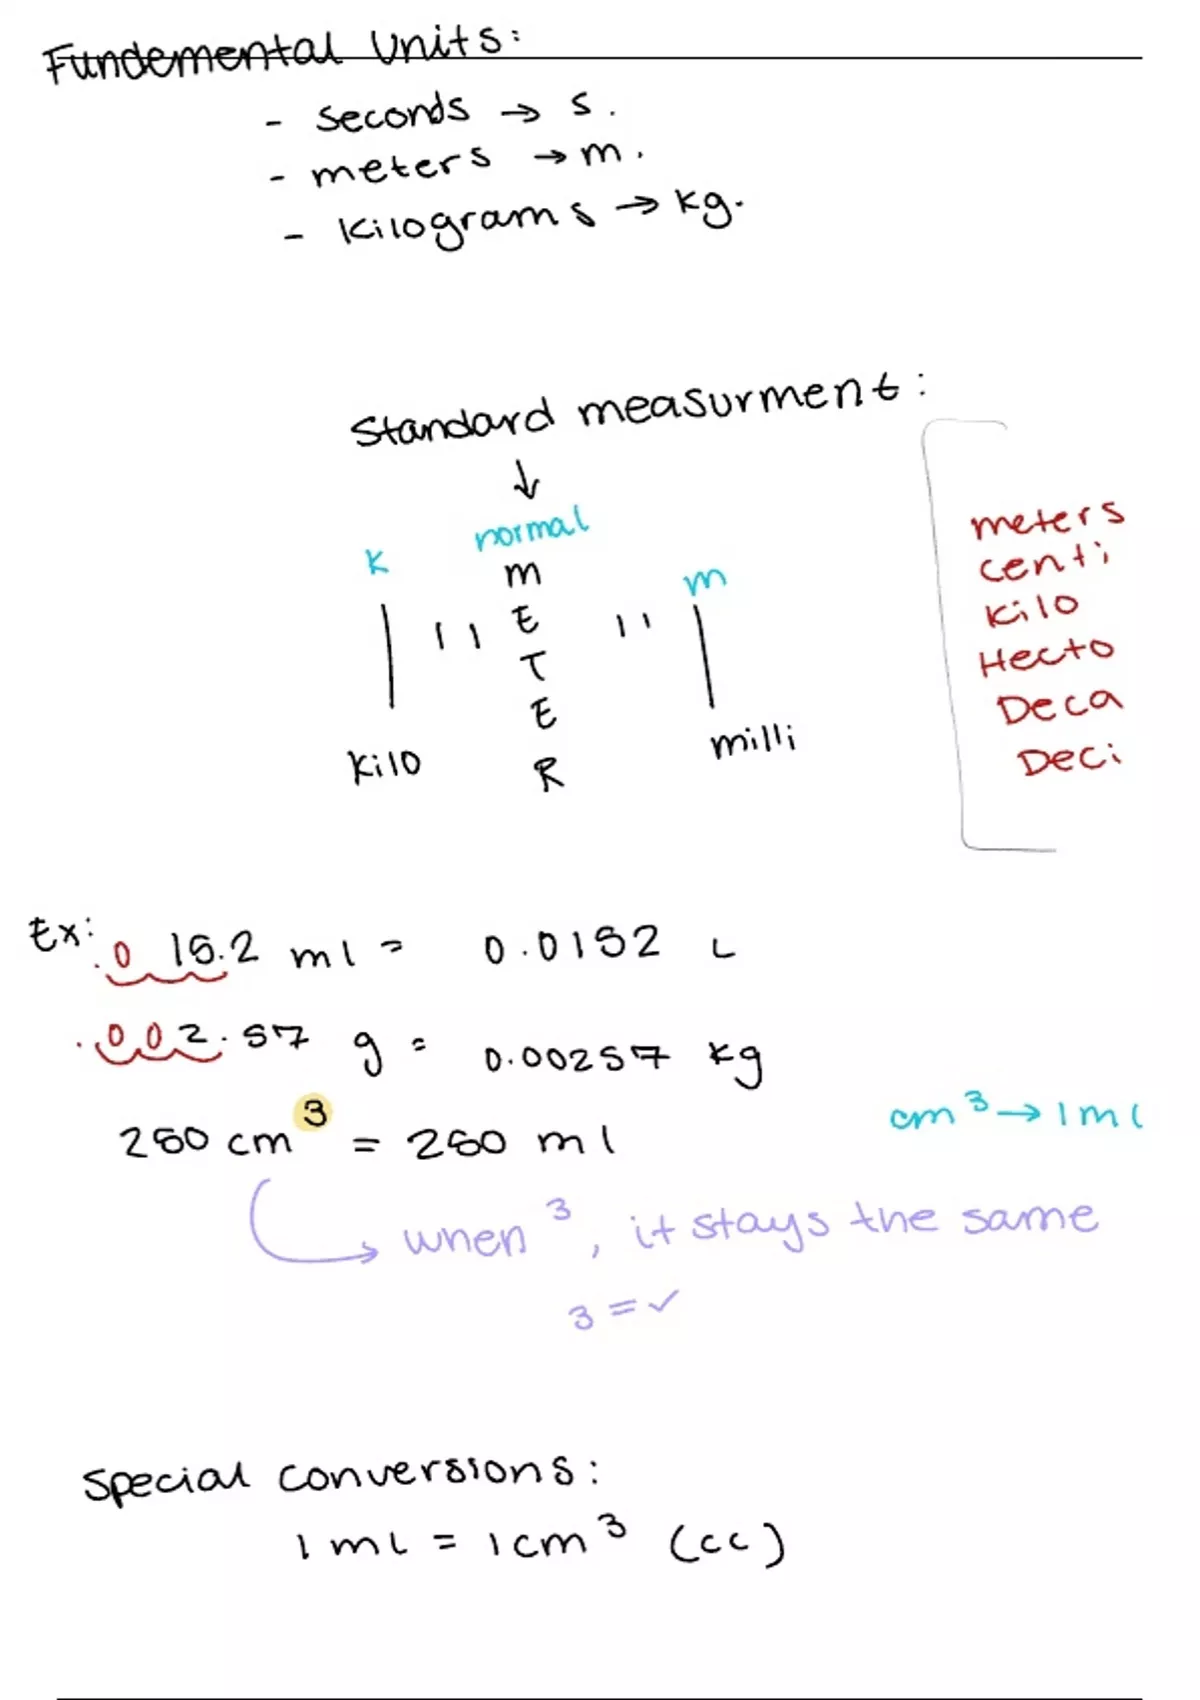 Fundemental Units:
- seconds → s.
- meters → m.
- Kilograms → kg.
Standard measurment:
↓
normal
K
m
METER
Kilo
milli
meters
centi
Kilo
Hecto
Deca
Deci
Ex: .0 15.2 ml = 0.0152 L
.002.57 g = 0.00257 kg
250 cm³ = 250 ml
cm³ → 1 ml
when ³, it stays the same
3 = ✓
Special conversions:
1 mL = 1 cm³ (cc)